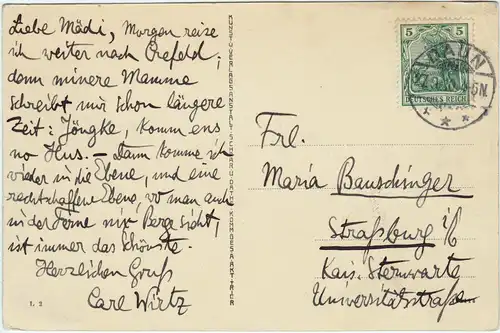 Liebe Mädi, Morgen reise
ich weiter nach Crefeld;
denn minere Mamme
schreibt mir schon längere
Zeit: Jöngke, komm ens
no Hus. – Dann komme ich
wieder in die Ebene, und eine
rechtschaffene Ebene, wo man auch
in der Ferne nix Berg sicht,
ist immer das Schönste.
Herzlichen Gruß
Carl Wirtz
1. 2
KUNSTVERLAGSANSTALT
5 5
DEUTSCHES REICH
Frl.
Maria Bauschinger
Straßburg i/E
Kais. Sternwarte
Universitätstraße